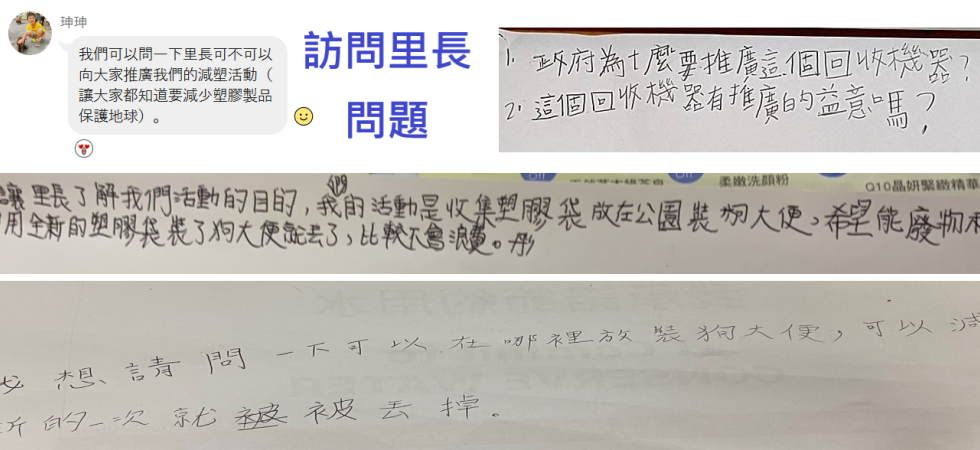 珅珅
我們可以問一下里長可不可以
向大家推廣我們的減塑活動（
讓大家都知道要減少塑膠製品
保護地球）。
訪問里長
問題
1. 政府為什麼要推廣這個回收機器？
2. 這個回收機器有推廣的益意嗎？
柔嫩洗顏粉
Q10晶妍緊緻精華
讓里長了解我們活動的目的，我們的活動是收集塑膠袋放在公園裝狗大便，希望能廢物
用全新的塑膠袋裝了狗大便就丟了，比較不會浪費。彤
我想請問一下可以在哪裡放裝狗大便，可以減
新的一次就被丟掉。
CONSERVE WATER